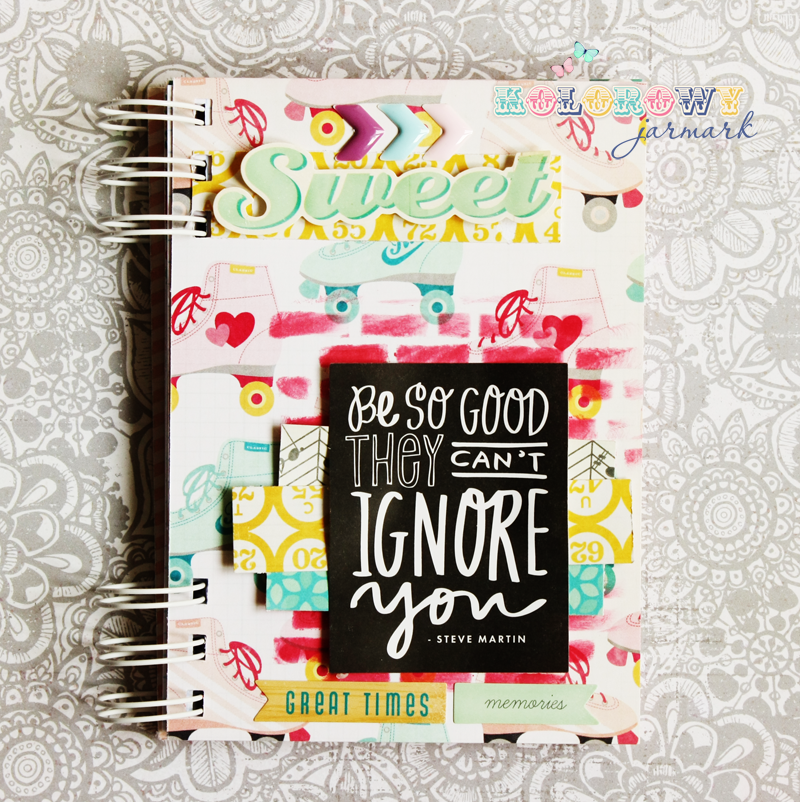 KOLOROWY
jarmark
Sweet
55 72 57 4
Be SO GOOD
THEY CAN'T
IGNORE
you
- STEVE MARTIN
20
62
GREAT TIMES
memories